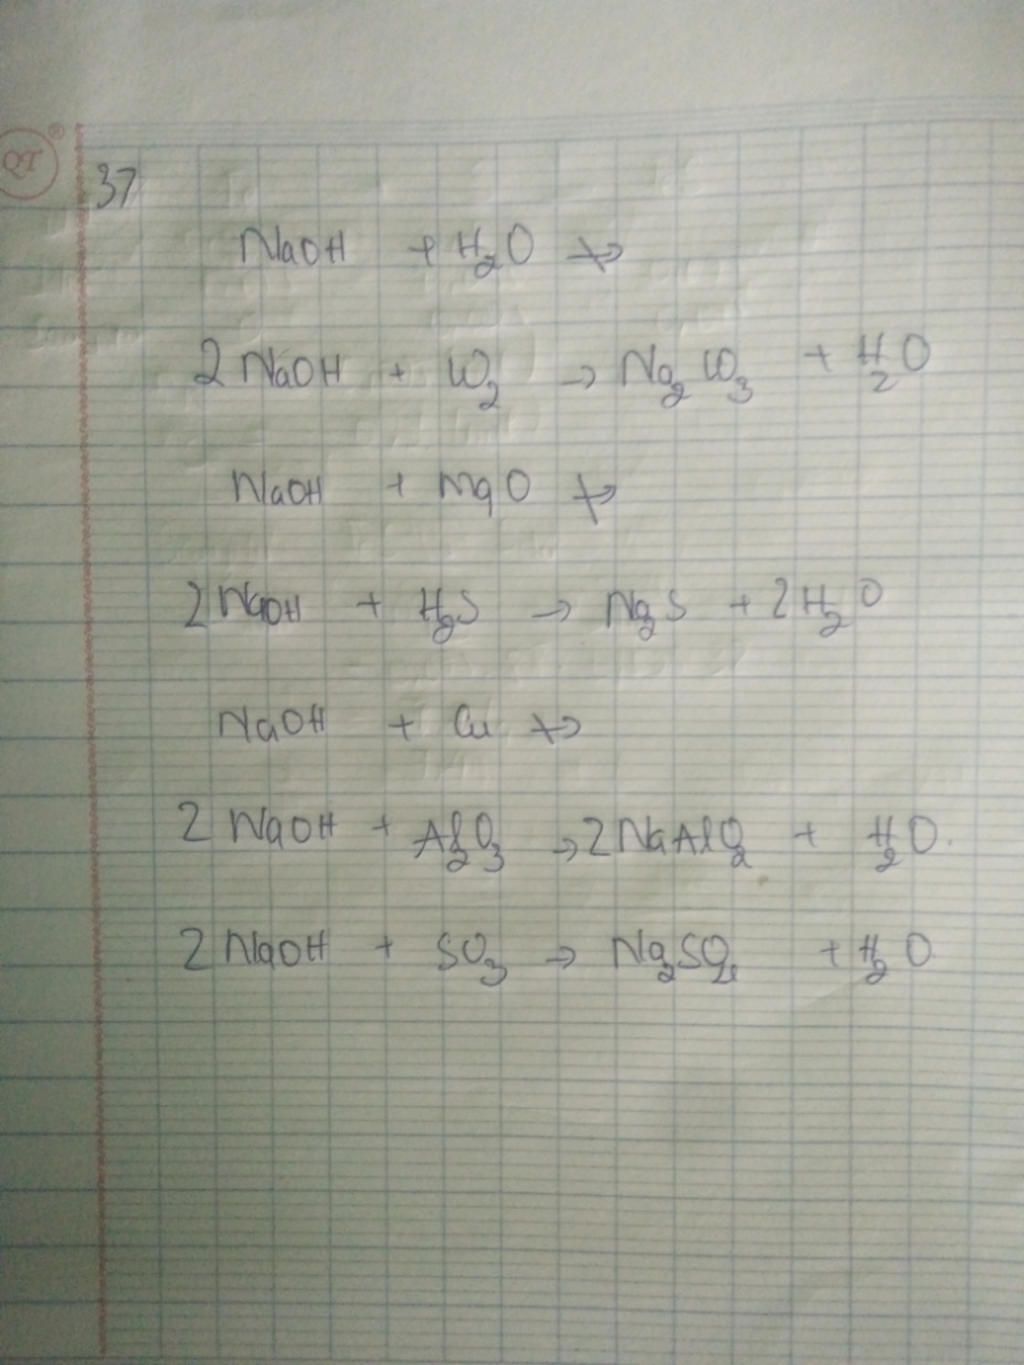 QT ®
37
NaOH + H₂O ↛
2NaOH + CO₂ → Na₂CO₃ + H₂O
NaOH + MgO ↛
2NaOH + H₂S → Na₂S + 2H₂O
NaOH + Cu ↛
2NaOH + Al₂O₃ → 2NaAlO₂ + H₂O.
2NaOH + SO₃ → Na₂SO₄ + H₂O